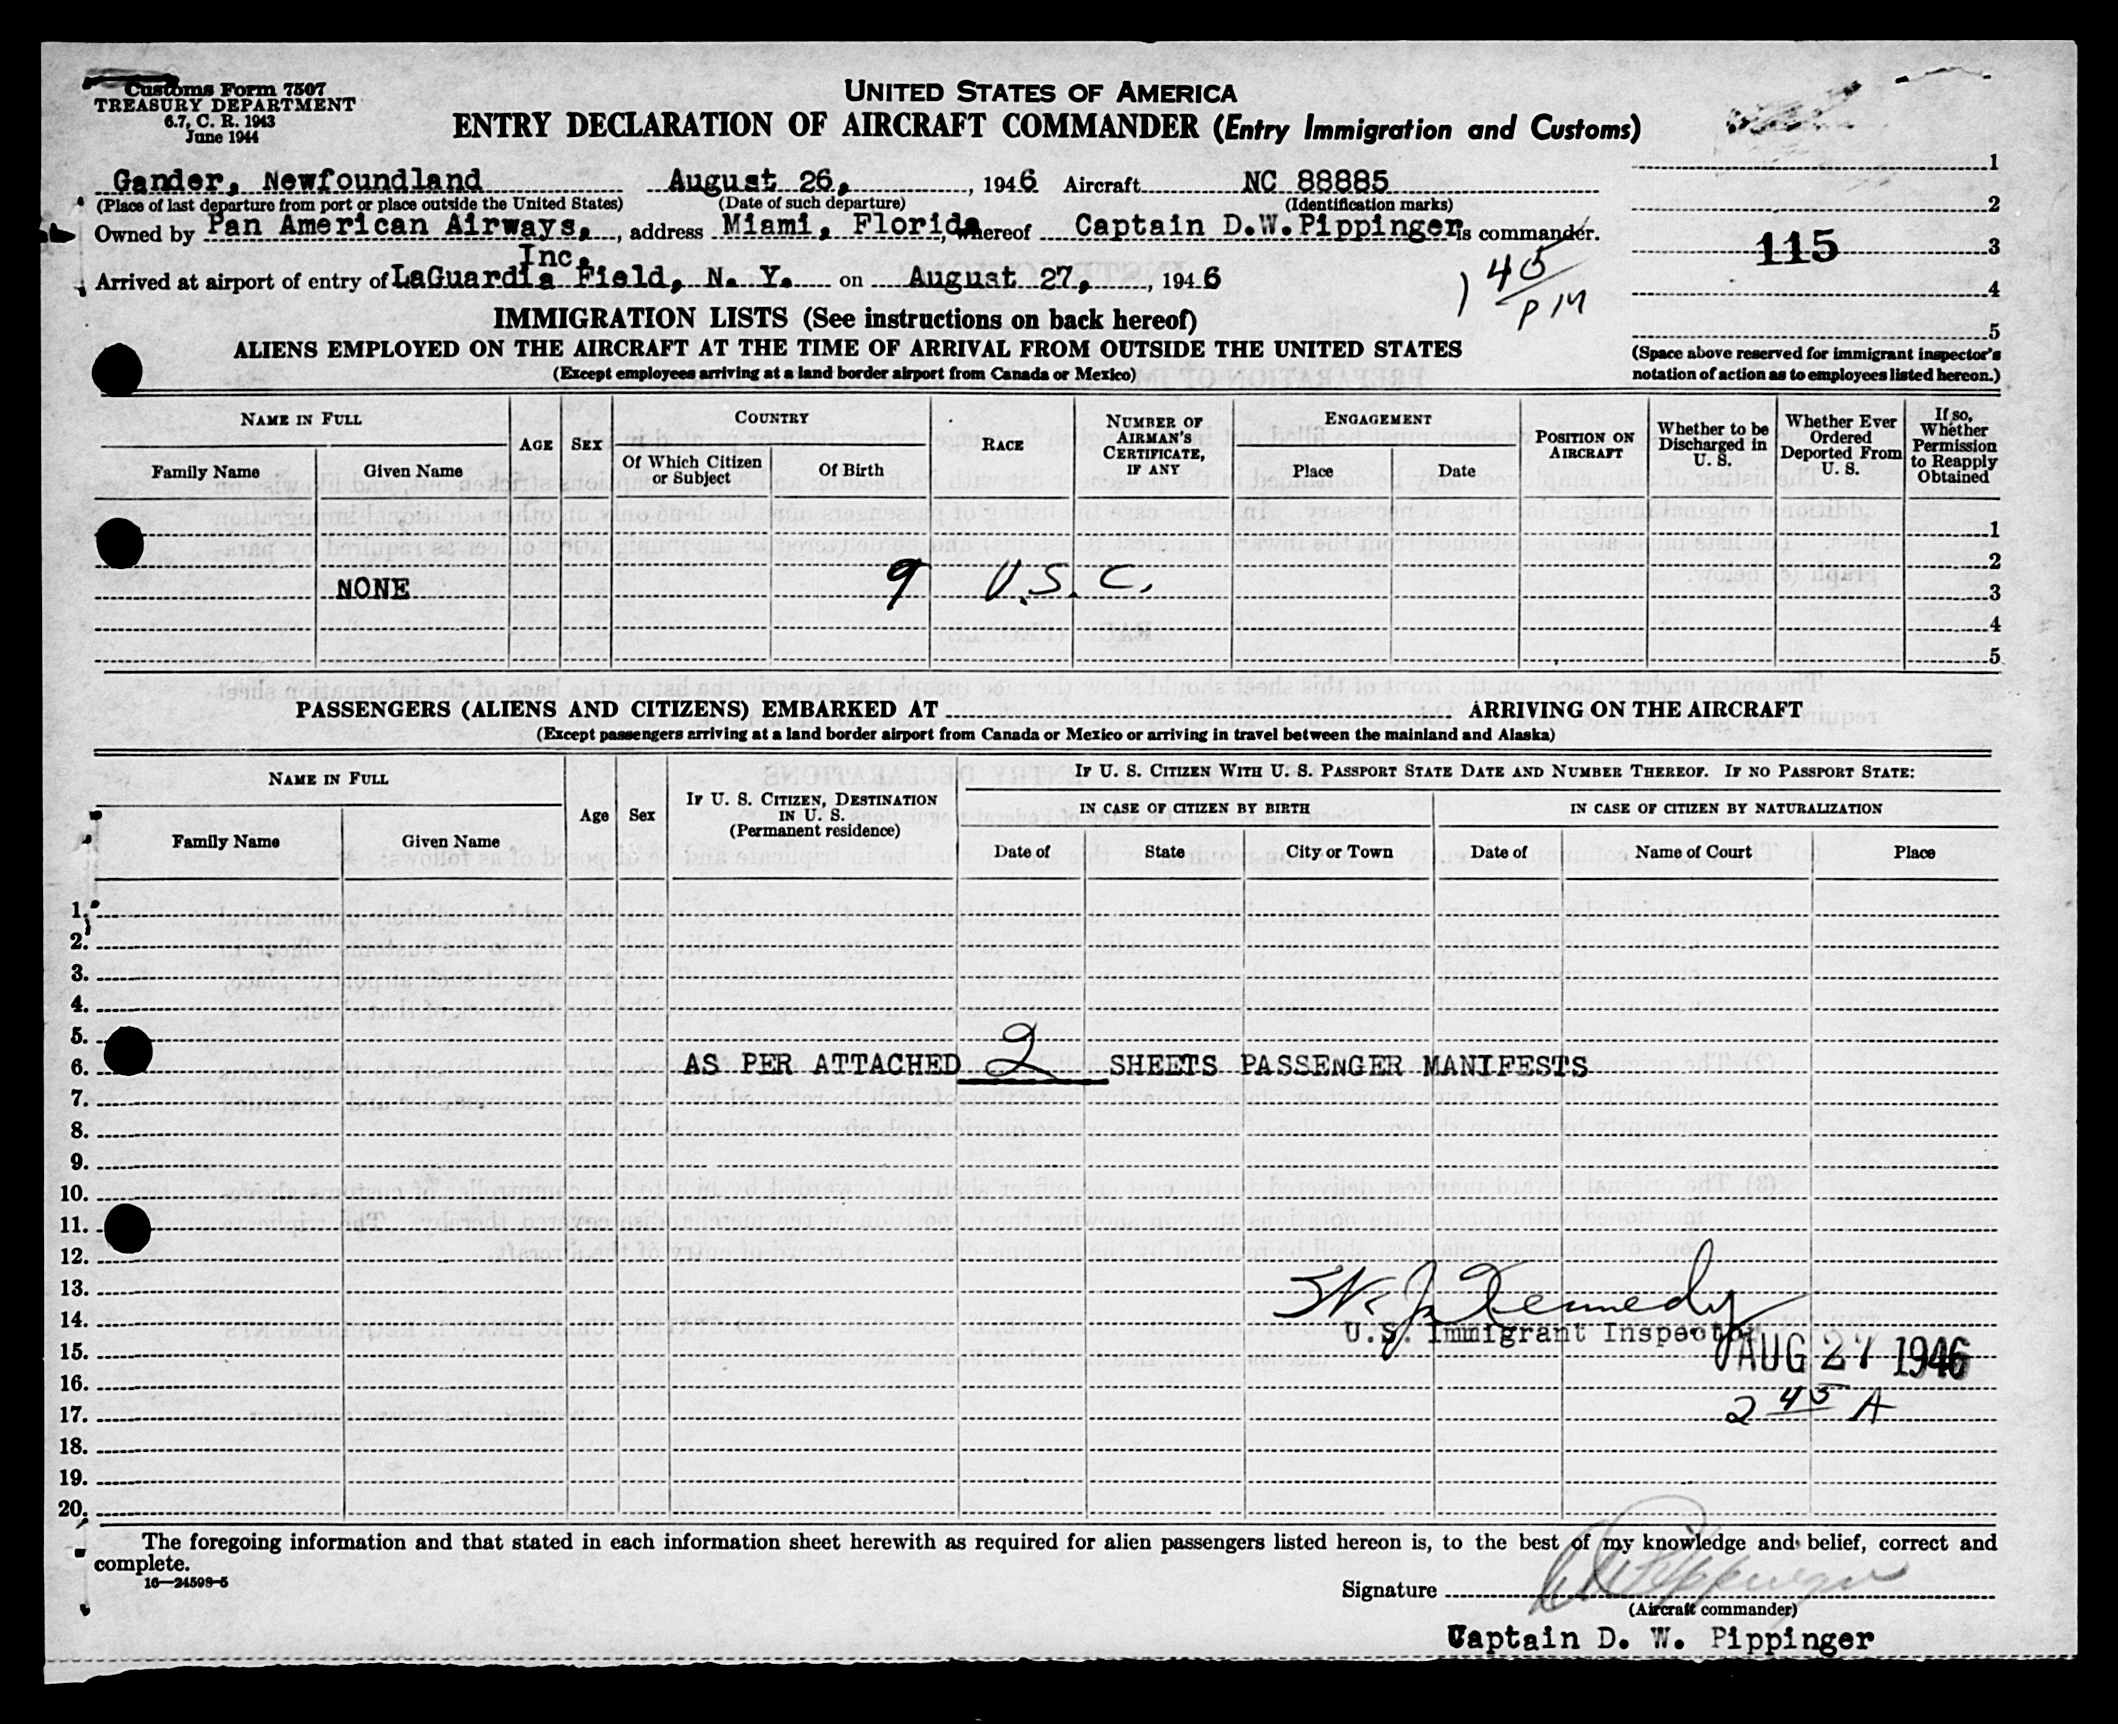 Customs Form 7507
TREASURY DEPARTMENT
6.7, C. R. 1943
June 1944
UNITED STATES OF AMERICA
ENTRY DECLARATION OF AIRCRAFT COMMANDER (Entry Immigration and Customs)
Gander, Newfoundland August 26, , 1946 Aircraft NC 88885
(Place of last departure from port or place outside the United States) (Date of such departure) (Identification marks)
Owned by Pan American Airways, , address Miami, Florida, whereof Captain D.W.Pippinger is commander.
Inc.
Arrived at airport of entry of LaGuardia Field, N. Y. on August 27, , 1946
1 45/PM
1
2
115 3
4
5
(Space above reserved for immigrant inspector's
notation of action as to employees listed hereon.)
IMMIGRATION LISTS (See instructions on back hereof)
ALIENS EMPLOYED ON THE AIRCRAFT AT THE TIME OF ARRIVAL FROM OUTSIDE THE UNITED STATES
(Except employees arriving at a land border airport from Canada or Mexico)
NAME IN FULL
Family Name Given Name
AGE SEX
COUNTRY
Of Which Citizen
or Subject
Of Birth
RACE
NUMBER OF
AIRMAN'S
CERTIFICATE,
IF ANY
ENGAGEMENT
Place Date
POSITION ON
AIRCRAFT
Whether to be
Discharged in
U. S.
Whether Ever
Ordered
Deported From
U. S.
If so,
Whether
Permission
to Reapply
Obtained
1
2
NONE 9 U.S.C. 3
4
5
PASSENGERS (ALIENS AND CITIZENS) EMBARKED AT ARRIVING ON THE AIRCRAFT
(Except passengers arriving at a land border airport from Canada or Mexico or arriving in travel between the mainland and Alaska)
NAME IN FULL
Family Name Given Name
Age Sex
IF U. S. CITIZEN, DESTINATION
IN U. S.
(Permanent residence)
IF U. S. CITIZEN WITH U. S. PASSPORT STATE DATE AND NUMBER THEREOF. IF NO PASSPORT STATE:
IN CASE OF CITIZEN BY BIRTH IN CASE OF CITIZEN BY NATURALIZATION
Date of State City or Town Date of Name of Court Place
1.
2.
3.
4.
5.
6. AS PER ATTACHED 2 SHEETS PASSENGER MANIFESTS
7.
8.
9.
10.
11.
12.
13.
W. J. Kennedy
14.
U.S. Immigrant Inspector
15. AUG 27 1946
16.
2 45 A
17.
18.
19.
20.
The foregoing information and that stated in each information sheet herewith as required for alien passengers listed hereon is, to the best of my knowledge and belief, correct and
complete.
16—24598-5
Signature D W Pippinger
(Aircraft commander)
Captain D. W. Pippinger